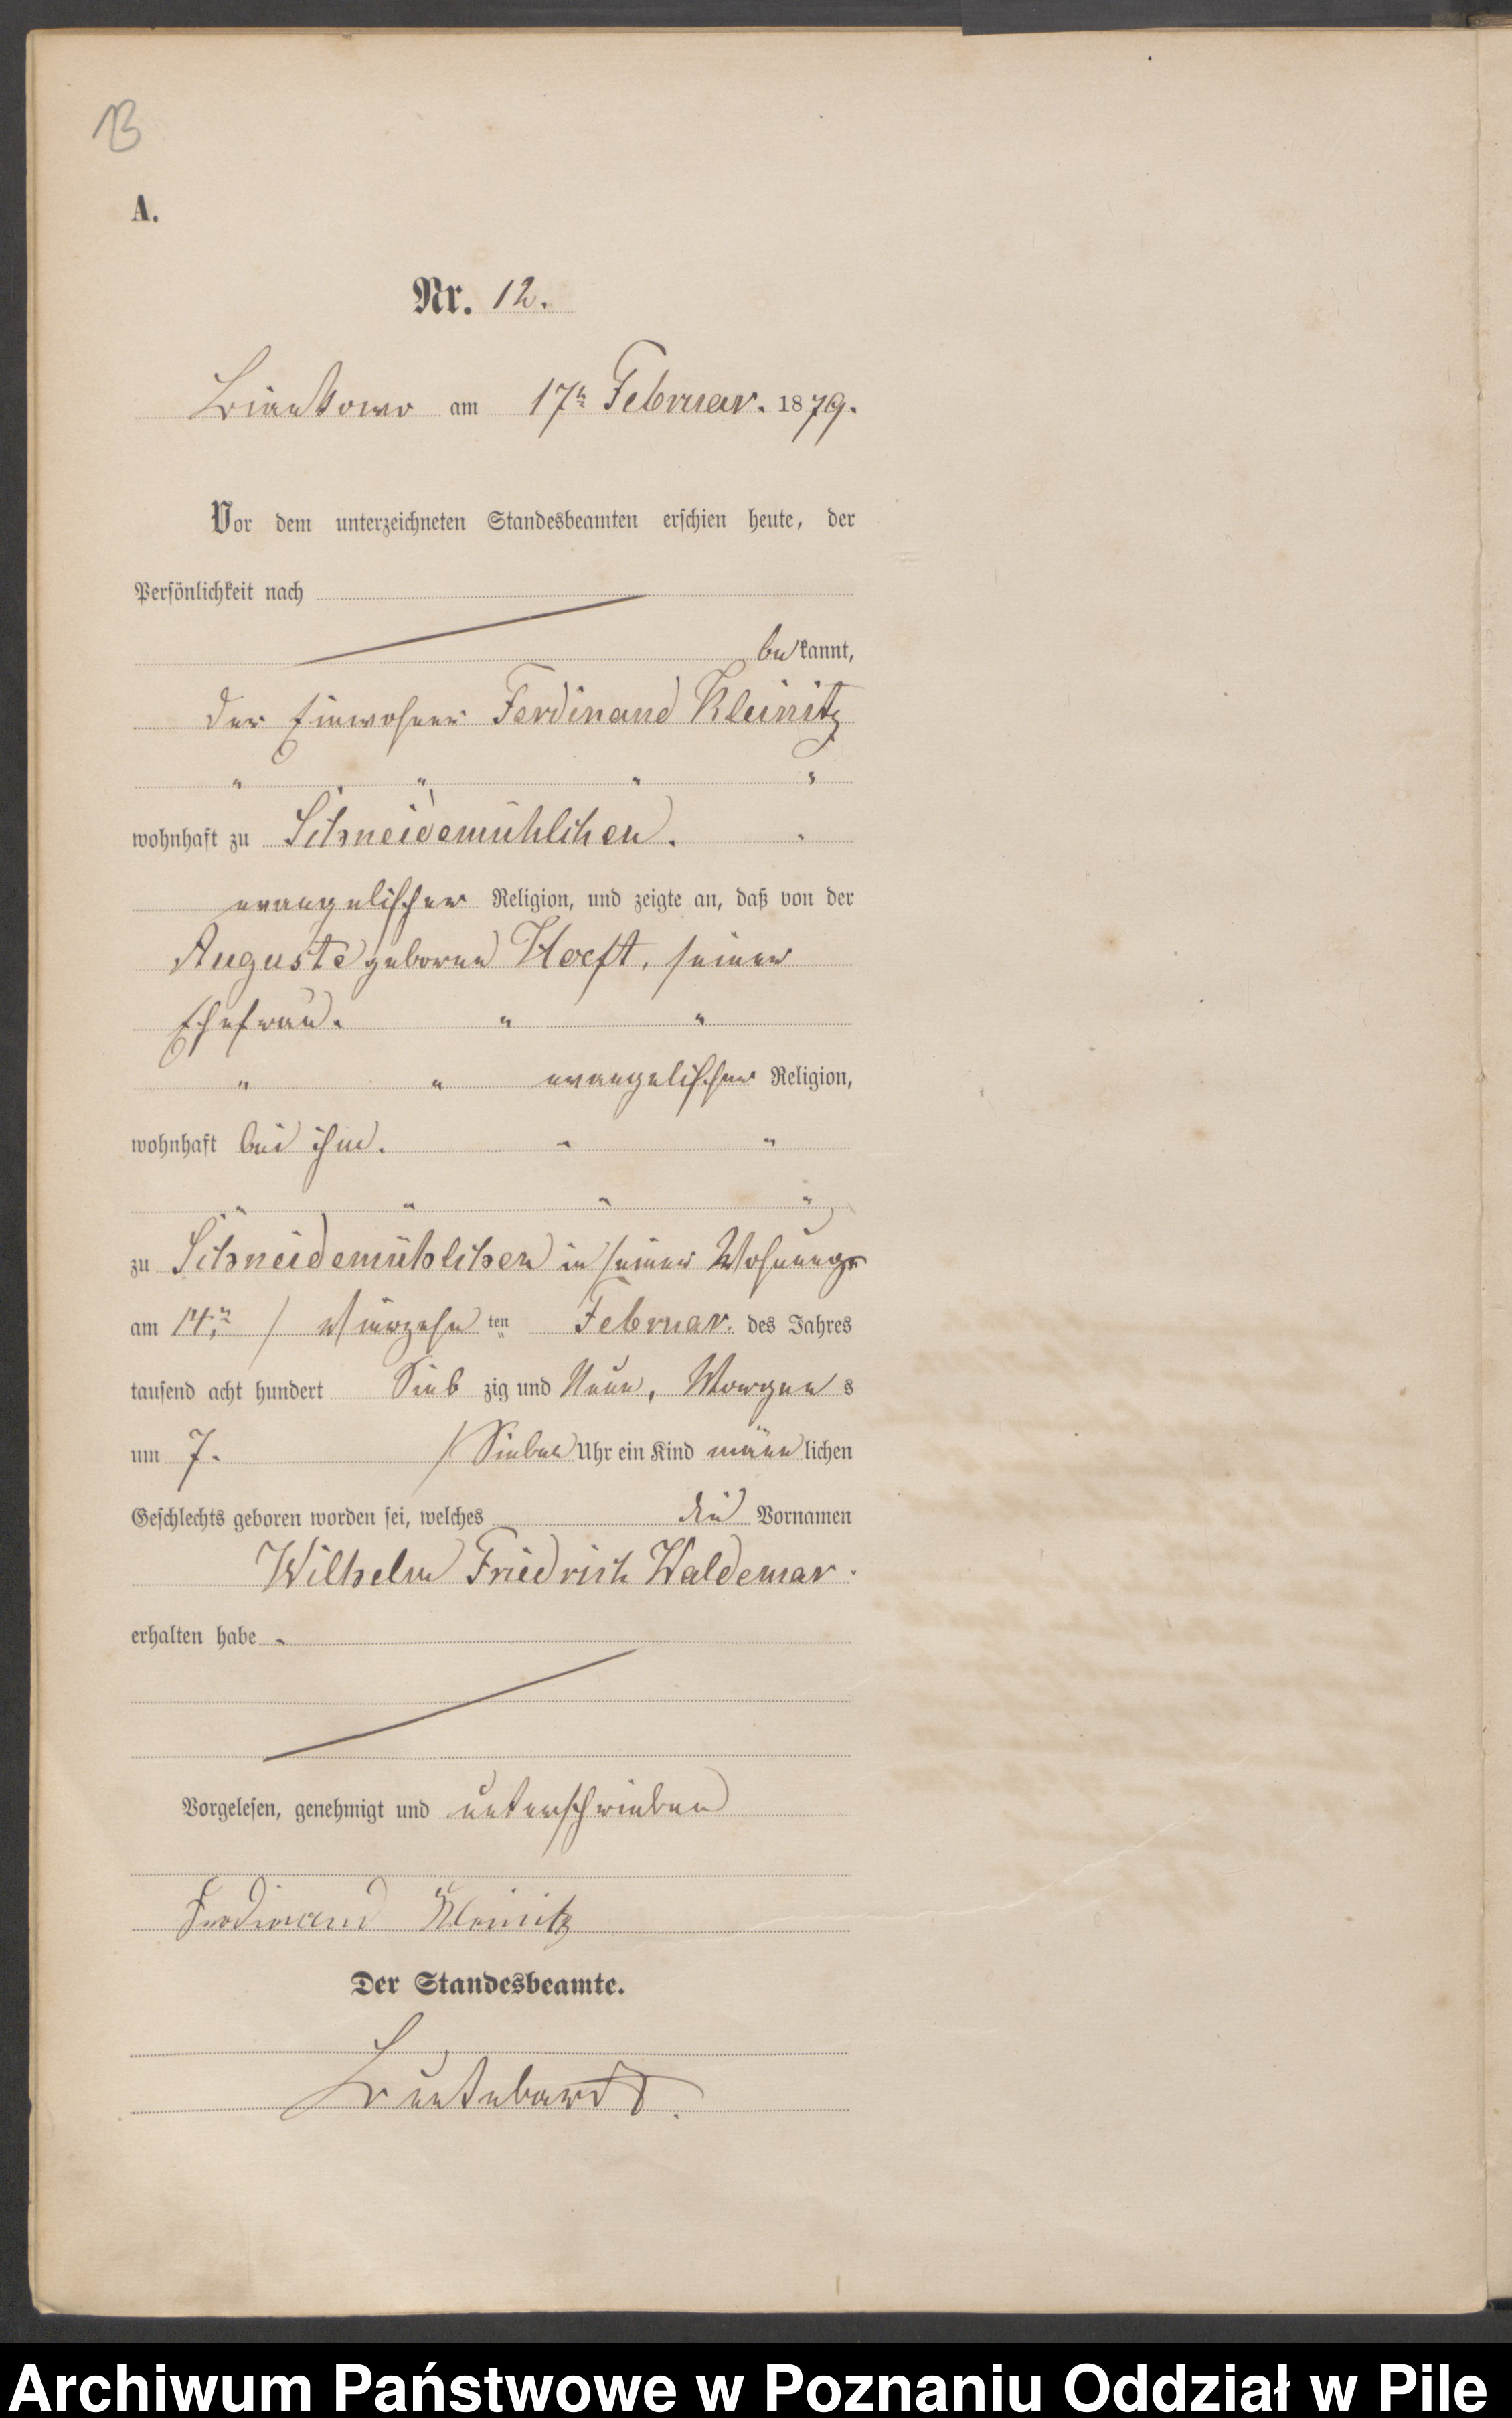 13
A.
Nr. 12.
Biankowo am 17n Februar. 1879.
Vor dem unterzeichneten Standesbeamten erschien heute, der
Persönlichkeit nach
bekannt,
der Einwohner Ferdinand Kleinitz
" " " "
wohnhaft zu Schneidemühlchen. "
evangelischer Religion, und zeigte an, daß von der
Auguste geborne Hoeft, seiner
Ehefrau. " "
" " evangelischer Religion,
wohnhaft bei ihm. " "
" " " "
zu Schneidemühlchen in seiner Wohnung
am 14.n / Vierzehn ten Februar. des Jahres
tausend acht hundert Sieb zig und Neun, Morgens
um 7. / Sieben Uhr ein Kind männlichen
Geschlechts geboren worden sei, welches die Vornamen
Wilhelm Friedrich Waldemar.
erhalten habe.
Vorgelesen, genehmigt und unterschrieben
Ferdinand Kleinitz
Der Standesbeamte.
Archiwum Państwowe w Poznaniu Oddział w Pile